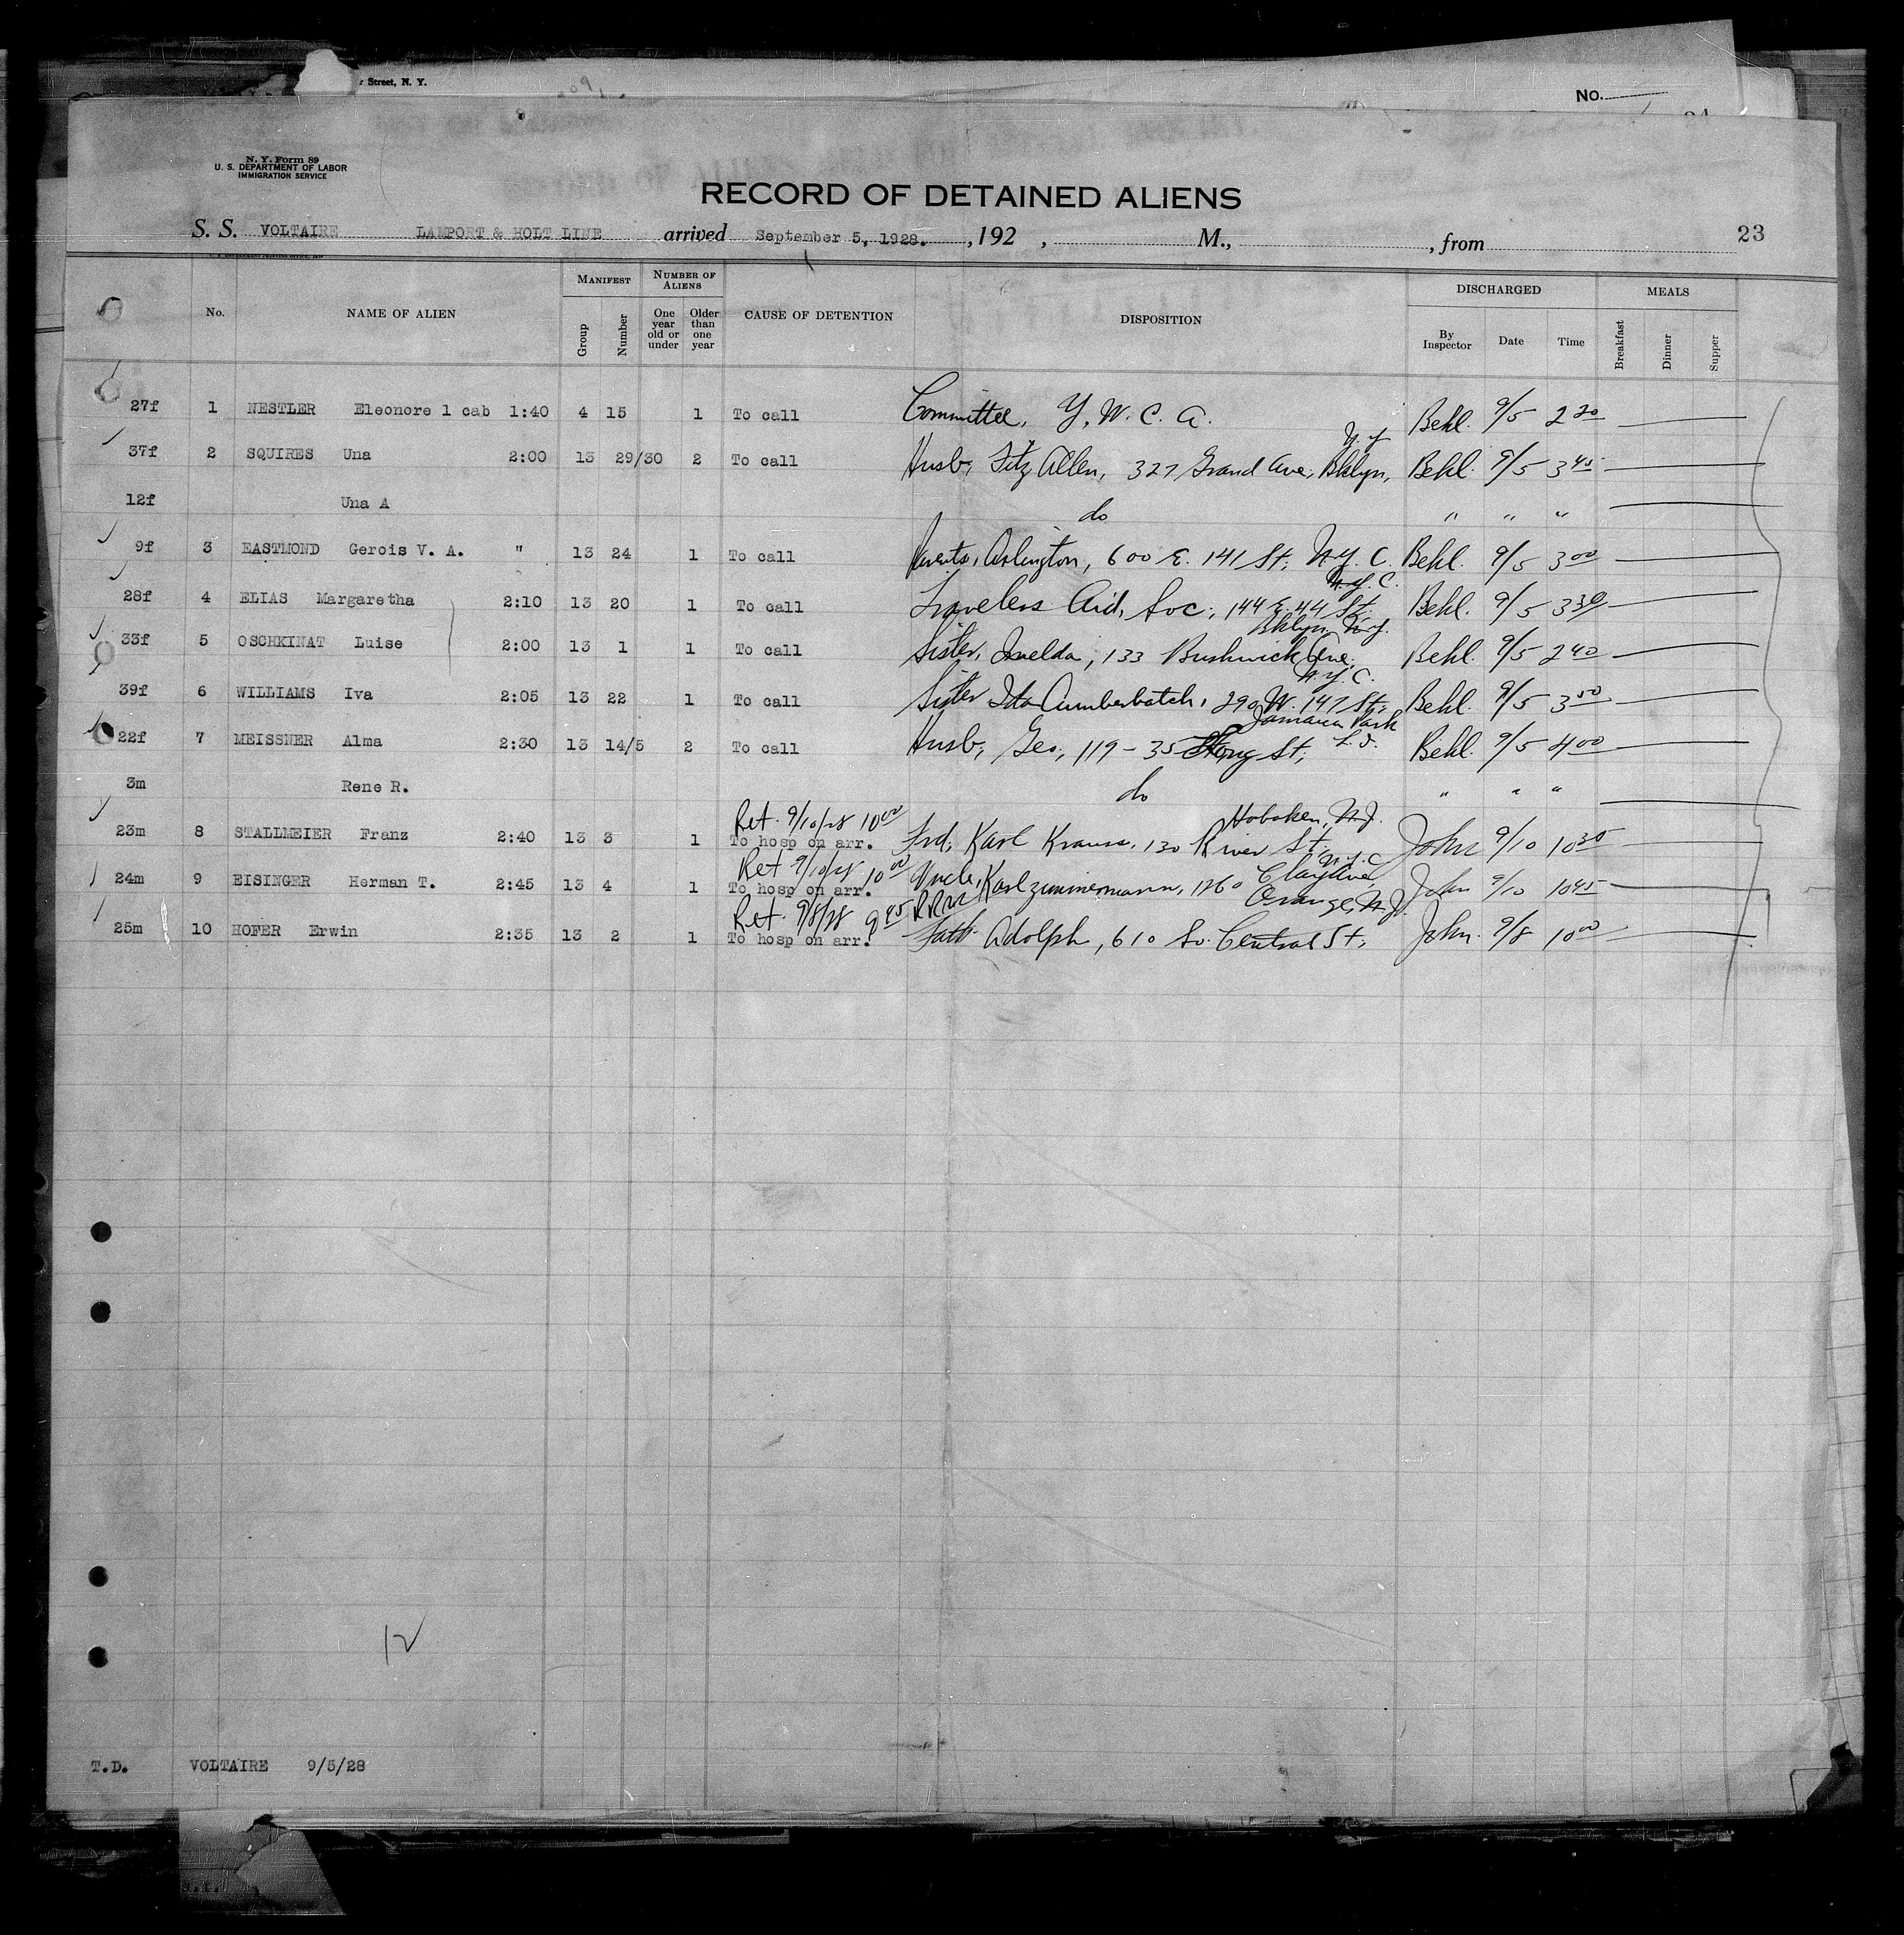 Street, N. Y.
No.
N. Y. Form 89
U. S. DEPARTMENT OF LABOR
IMMIGRATION SERVICE
RECORD OF DETAINED ALIENS
S. S. VOLTAIRE LAMPORT & HOLT LINE arrived September 5, 1928. , 192 , M., , from 23
No. NAME OF ALIEN MANIFEST Group Number NUMBER OF ALIENS One year old or under Older than one year CAUSE OF DETENTION DISPOSITION DISCHARGED By Inspector Date Time MEALS Breakfast Dinner Supper
27f 1 NESTLER Eleonore 1 cab 1:40 4 15 1 To call Committee, Y. W. C. A. Behl. 9/5 2 20
N. Y
37f 2 SQUIRES Una 2:00 13 29/30 2 To call Husb, Fitz Allen, 327 Grand Ave, Bklyn, Behl. 9/5 3 45
12f Una A do " " "
9f 3 EASTMOND Gerois V. A. " 13 24 1 To call Parents, Arlington, 600 E. 141 St, N.Y.C. Behl. 9/5 3 00
N.Y.C.
28f 4 ELIAS Margaretha 2:10 13 20 1 To call Travelers Aid, Soc, 144 E. 44 St. Behl. 9/5 3 30
Bklyn, N.Y.
33f 5 OSCHKINAT Luise 2:00 13 1 1 To call Sister, Imelda, 133 Bushwick Ave, Behl. 9/5 2 40
N.Y.C.
39f 6 WILLIAMS Iva 2:05 13 22 1 To call Sister Ida Cumberbatch, 290 W. 147 St, Behl. 9/5 3 50
Jamaica Park
22f 7 MEISSNER Alma 2:30 13 14/5 2 To call Husb, Geo, 119-35 St, L.I. Behl. 9/5 4 00
3m Rene R. do " " "
Ret. 9/10/28 10 00 Hoboken, N.J.
23m 8 STALLMEIER Franz 2:40 13 3 1 To hosp on arr. Frd, Karl Kraus, 130 River St, John 9/10 10 30
Ret 9/10/28 10 00 N.Y.C
24m 9 EISINGER Herman T. 2:45 13 4 1 To hosp on arr. Uncle, Karl Zimmermann, 1260 Clay Ave, John 9/10 10 45
Ret. 9/8/28 9 45 Orange, N.J.
25m 10 HOFER Erwin 2:35 13 2 1 To hosp on arr. Fath Adolph, 610 So. Central St, John. 9/8 10 00
12
T.D. VOLTAIRE 9/5/28